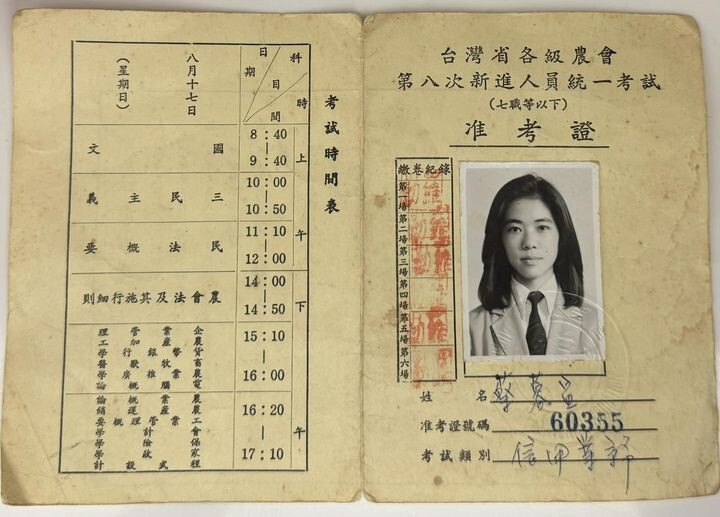 台灣省各級農會
第八次新進人員統一考試
(七職等以下)
准考證
繳卷紀錄
第一場
第二場
第三場
第四場
第五場
第六場
姓名 蔡
准考證號碼 60355
考試類別 信用業務
考試時間表
科目
時間
日期
八月十七日
(星期日)
上午
8:40 | 9:40 國文
10:00 | 10:50 三民主義
11:10 | 12:00 民法概要
下午
14:00 | 14:50 農會法及其施行細則
15:10 | 16:00
企業管理
農產加工
貨幣銀行學
畜牧獸醫學
農業推廣學
電腦概論
16:20 | 17:10
農業概論
農產運銷
工業管理概要
會計學
保險學
家政學
程式設計